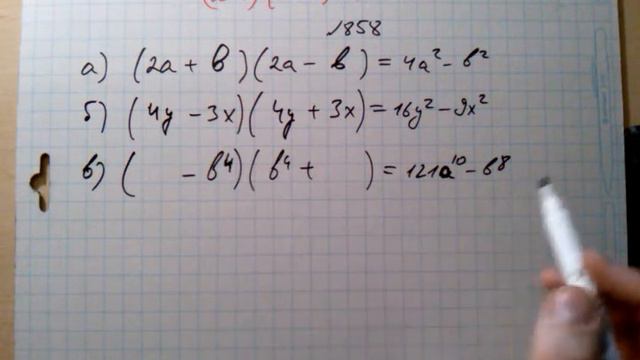 №858
а) (2a + b)(2a - b) = 4a² - b²
б) (4y - 3x)(4y + 3x) = 16y² - 9x²
в) ( - b⁴)(b⁴ + ) = 121a¹⁰ - b⁸